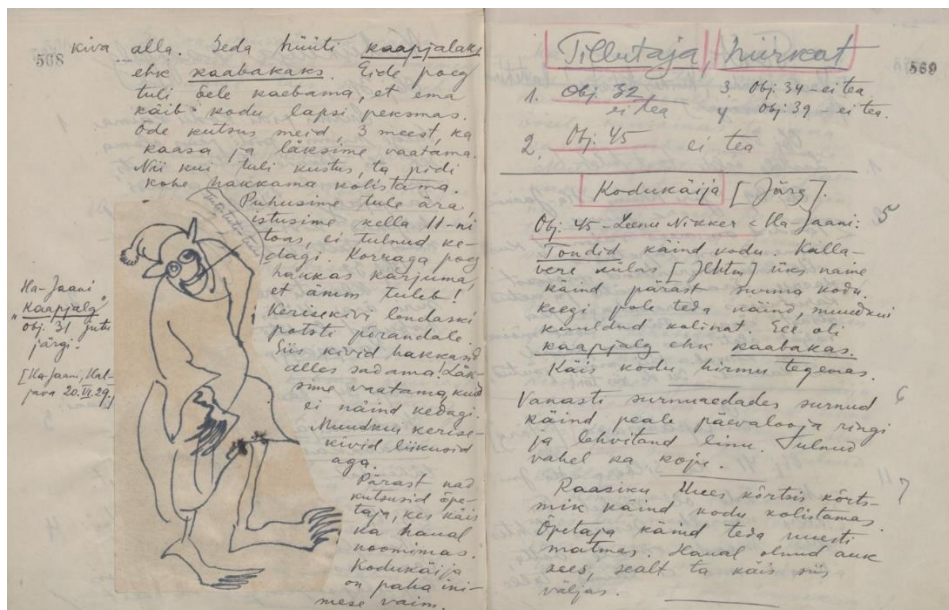 568
kiva alla. Seda hüüti kaapjalaks
ehk kaabakaks. Eide poeg
tuli õele kaebama, et ema
käib kodu lapsi peksmas.
Õde kutsus meid, 3 meest, ka
kaasa ja läksime vaatama.
Nii kui tuli kustus, ta pidi
kohe hakkama kolistama.
Puhusime tule ära,
istusime kella 11-ni
toas, ei tulnud ke-
dagi. Korraga poeg
hakkas karjuma,
et ämm tuleb!
Kerisekivi lendaski
potsti põrandale.
Siis kivid hakkasid
alles sadama. Läk-
sime vaatama, kuid
ei näind kedagi.
Muudkui kerise-
kivid liikusid
aga.
Pärast nad
kutsusid õpe-
taja, kes käis
ka haual
noomimas.
Kodukäija
on paha ini-
mese vaim.
Ha-Jaani
"Kaapjalg"
obj. 31 jutu
järgi.
[Ha-Jaani, Kal-
java 20.VI.29.]
569
Tillutaja, hürkat
1. Obj. 32
ei tea
3 Obj. 34 - ei tea
4 Obj. 39 - ei tea.
2. Obj. 45 ei tea
Kodukäija [Järg].
5
Obj. 45 - Leenu Nikker < Ha-Jaani:
Tondid käind kodu. Kalla-
vere külas [Jõhtm] üks naine
käind pärast surma kodu.
Keegi pole teda näind, muudkui
kuuldud kolinat. See oli
kaapjalg ehk kaabakas.
Käis kodu hirmu tegemas.
6
Vanasti surnuaedades surnud
käind peale päevalooja ringi
ja lehvitand linu. Tulnud
vahel ka koju.
7
Raasiku Uues kõrtsis kõrts-
mik käind kodu kolistamas.
Õpetaja käind teda uuesti
matmas. Haual olnud auk
sees, sealt ta käis siis
väljas.